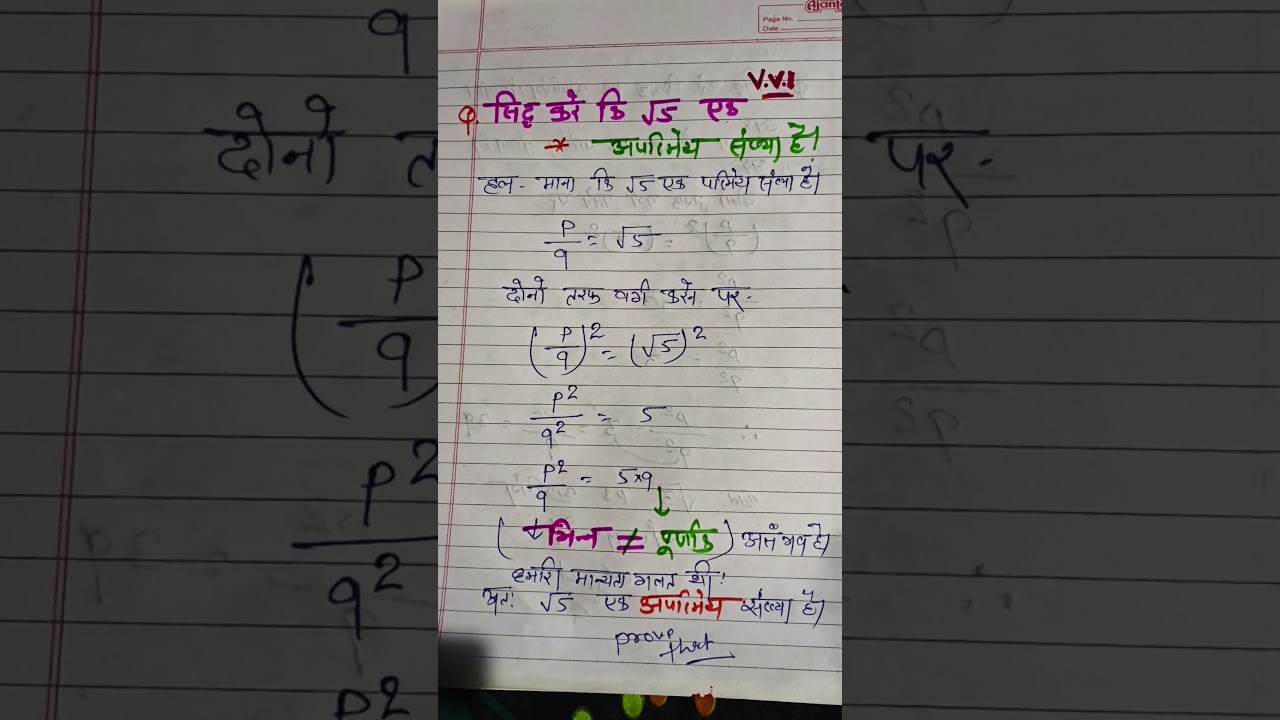 Ajanta
Page No.
Date
V.V.I
Q. सिद्ध करे कि √5 एक
* अपरिमेय संख्या है।
हल - माना कि √5 एक परिमेय संख्या है।
p/q = √5
दोनो तरफ वर्ग करने पर -
(p/q)² = (√5)²
p²/q² = 5
p²/q = 5×q
(↓ भिन्न ≠ पूर्णांक) असंभव है।
हमारी मान्यता गलत थी।
अतः √5 एक अपरिमेय संख्या है।
prove that